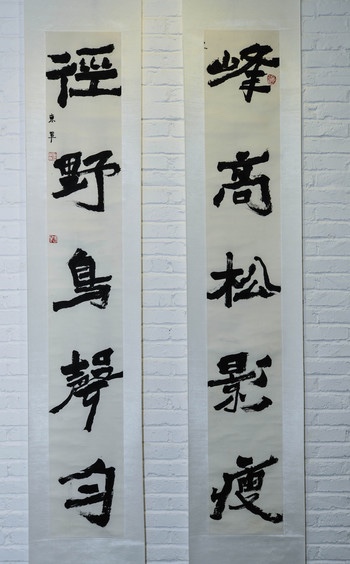 峰高松影瘦
徑野鳥聲匀